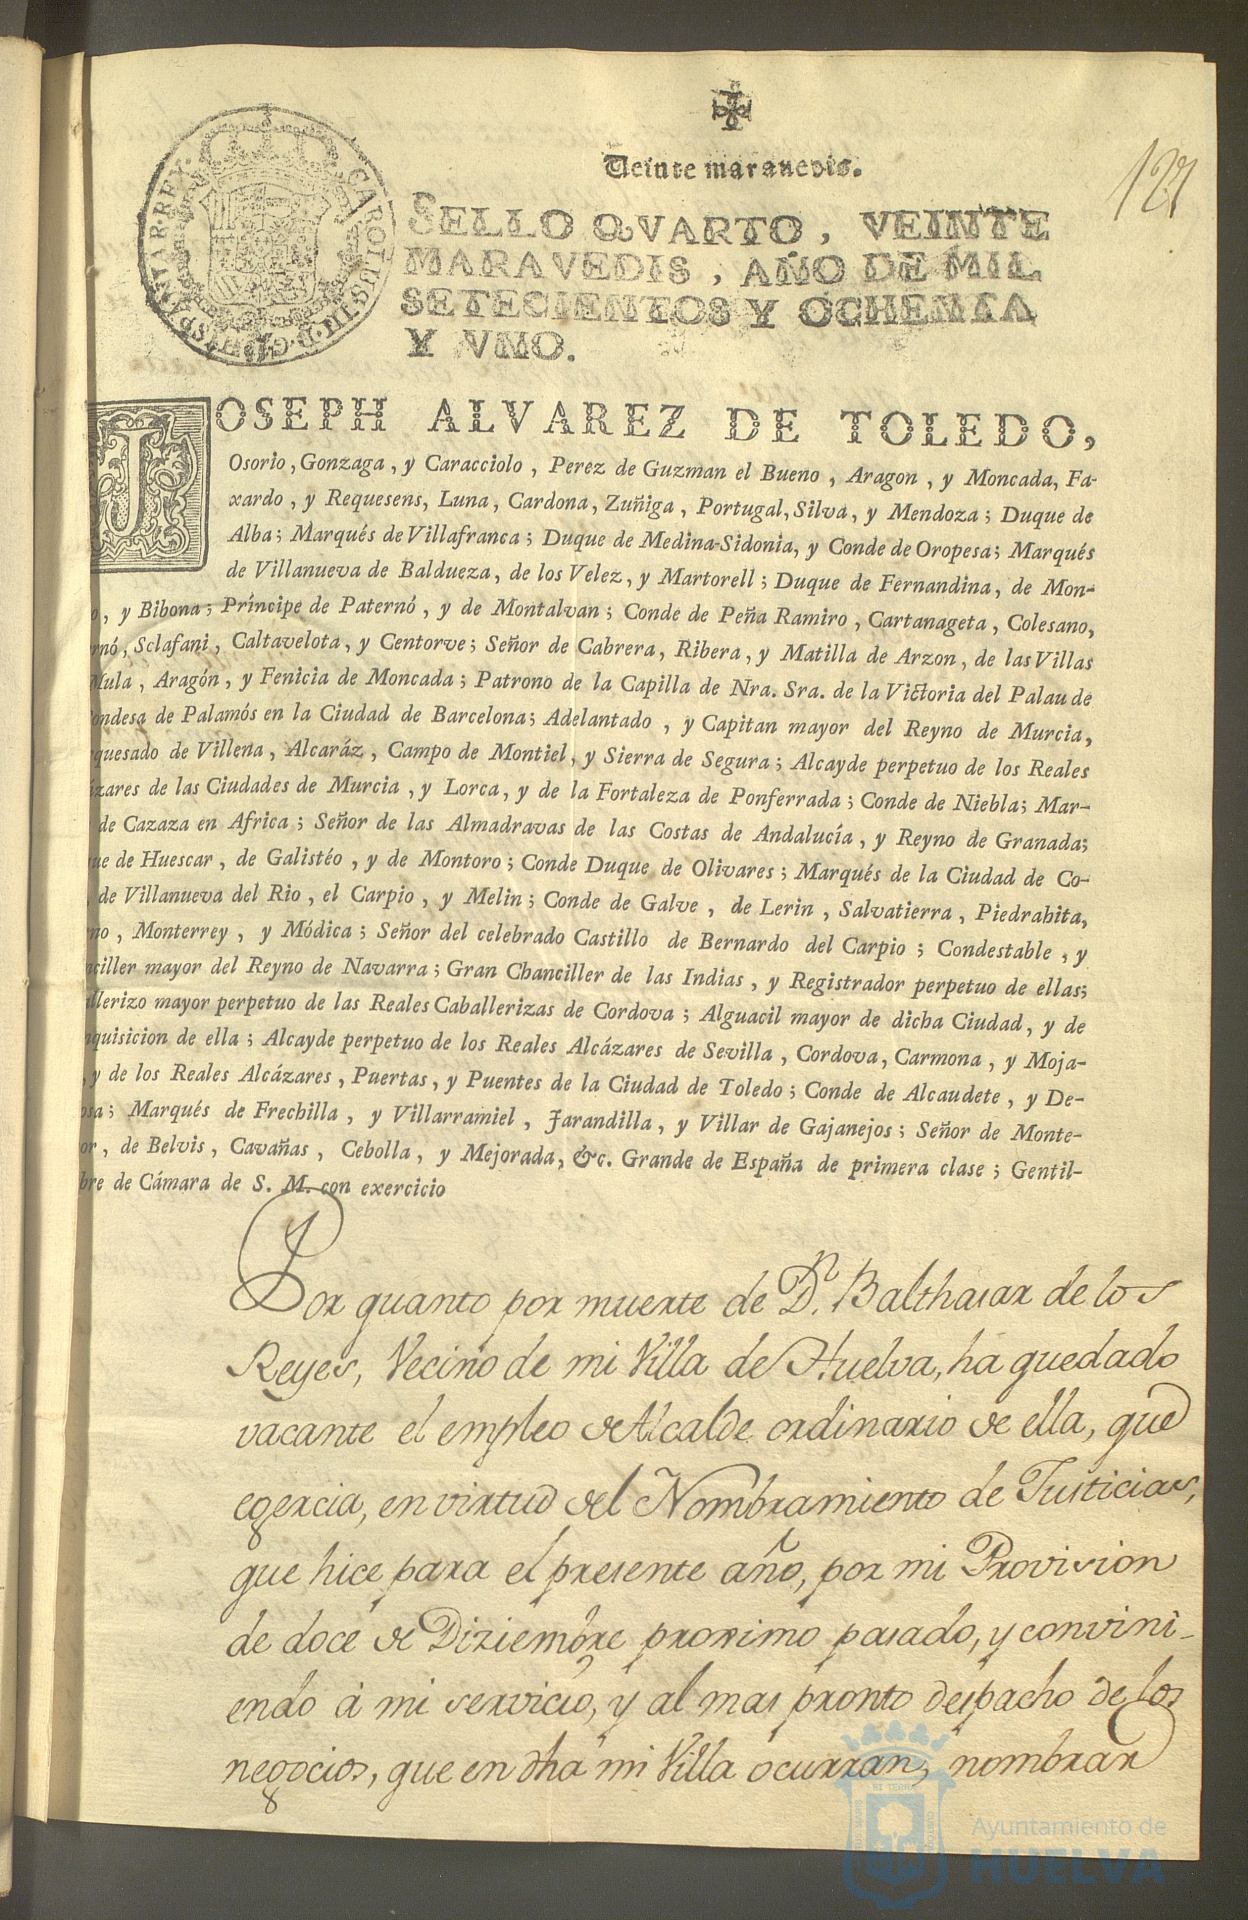 Veinte maravedis.
127
CAROLUS III D.G. HISPANIAR. REX.
SELLO QVARTO, VEINTE
MARAVEDIS, AÑO DE MIL
SETECIENTOS Y OCHENTA
Y VNO.
JOSEPH ALVAREZ DE TOLEDO,
Osorio, Gonzaga, y Caracciolo, Perez de Guzman el Bueno, Aragon, y Moncada, Fa-
xardo, y Requesens, Luna, Cardona, Zuñiga, Portugal, Silva, y Mendoza; Duque de
Alba; Marqués de Villafranca; Duque de Medina-Sidonia, y Conde de Oropesa; Marqués
de Villanueva de Baldueza, de los Velez, y Martorell; Duque de Fernandina, de Mon-
o, y Bibona; Príncipe de Paternó, y de Montalvan; Conde de Peña Ramiro, Cartanageta, Colesano,
rnó, Sclafani, Caltavelota, y Centorve; Señor de Cabrera, Ribera, y Matilla de Arzon, de las Villas
Mula, Aragón, y Fenicia de Moncada; Patrono de la Capilla de Nra. Sra. de la Victoria del Palau de
Condesa de Palamós en la Ciudad de Barcelona; Adelantado, y Capitan mayor del Reyno de Murcia,
rquesado de Villena, Alcaráz, Campo de Montiel, y Sierra de Segura; Alcayde perpetuo de los Reales
ázares de las Ciudades de Murcia, y Lorca, y de la Fortaleza de Ponferrada; Conde de Niebla; Mar-
de Cazaza en Africa; Señor de las Almadravas de las Costas de Andalucía, y Reyno de Granada;
que de Huescar, de Galistéo, y de Montoro; Conde Duque de Olivares; Marqués de la Ciudad de Co-
, de Villanueva del Rio, el Carpio, y Melin; Conde de Galve, de Lerin, Salvatierra, Piedrahita,
rno, Monterrey, y Módica; Señor del celebrado Castillo de Bernardo del Carpio; Condestable, y
nciller mayor del Reyno de Navarra; Gran Chanciller de las Indias, y Registrador perpetuo de ellas;
allerizo mayor perpetuo de las Reales Caballerizas de Cordova; Alguacil mayor de dicha Ciudad, y de
nquisicion de ella; Alcayde perpetuo de los Reales Alcázares de Sevilla, Cordova, Carmona, y Moja-
, y de los Reales Alcázares, Puertas, y Puentes de la Ciudad de Toledo; Conde de Alcaudete, y De-
osa; Marqués de Frechilla, y Villarramiel, Jarandilla, y Villar de Gajanejos; Señor de Monte-
or, de Belvis, Cavañas, Cebolla, y Mejorada, &c. Grande de España de primera clase; Gentil-
bre de Cámara de S. M. con exercicio
Por quanto por muerte de Dn. Balthasar de los
Reyes, Vecino de mi Villa de Huelva, ha quedado
vacante el empleo de Alcalde ordinario de ella, que
egercia, en virtud del Nombramiento de Justicias,
que hice para el presente año, por mi Provision
de doce de Diziembre proximo pasado, y convini-
endo á mi servicio, y al mas pronto despacho de los
negocios, que en dha mi Villa ocurran, nombrar
Ayuntamiento de
HUELVA